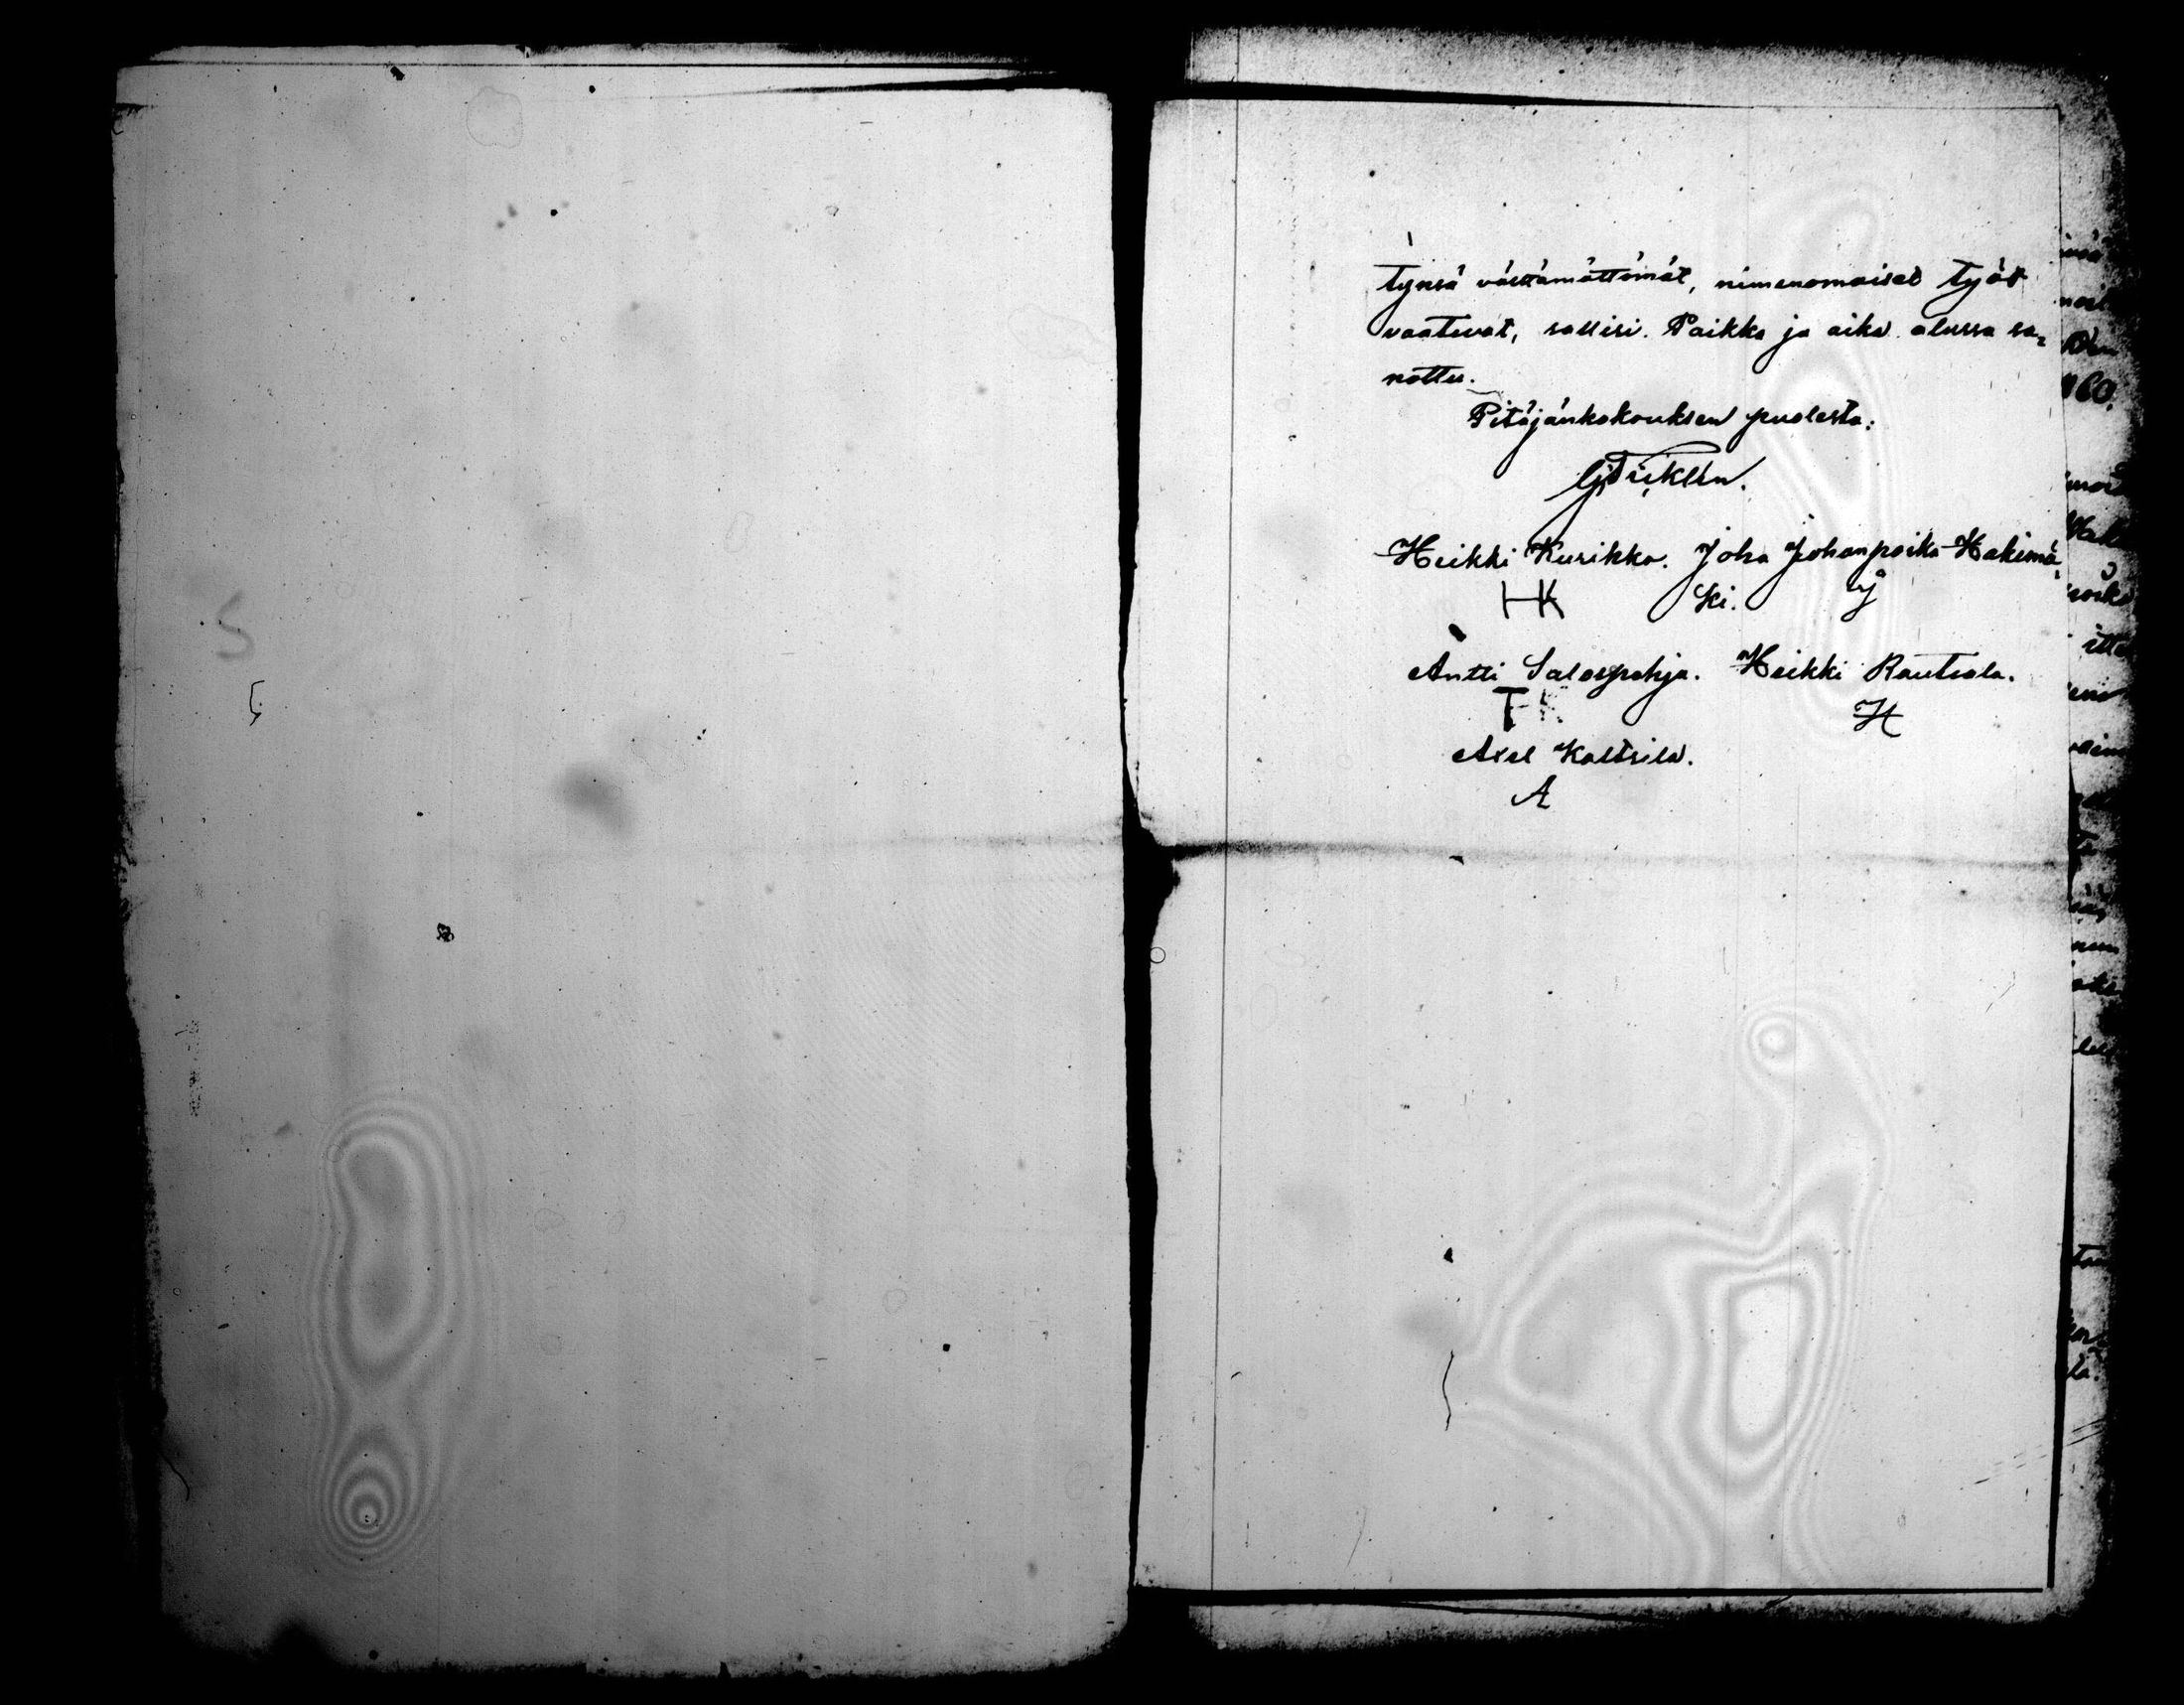 tynsä välttämättömät, nimenomaiset työt
vaativat, sallisi. Paikka ja aika alussa sa-
nottu.
Pitäjänkokouksen puolesta:
Heikki Kurikka. Joha Johanpoika Hakimä-
HK ki. J
Antti Salospohja. Heikki Rautiala.
T H
Axel Kaltsila.
A